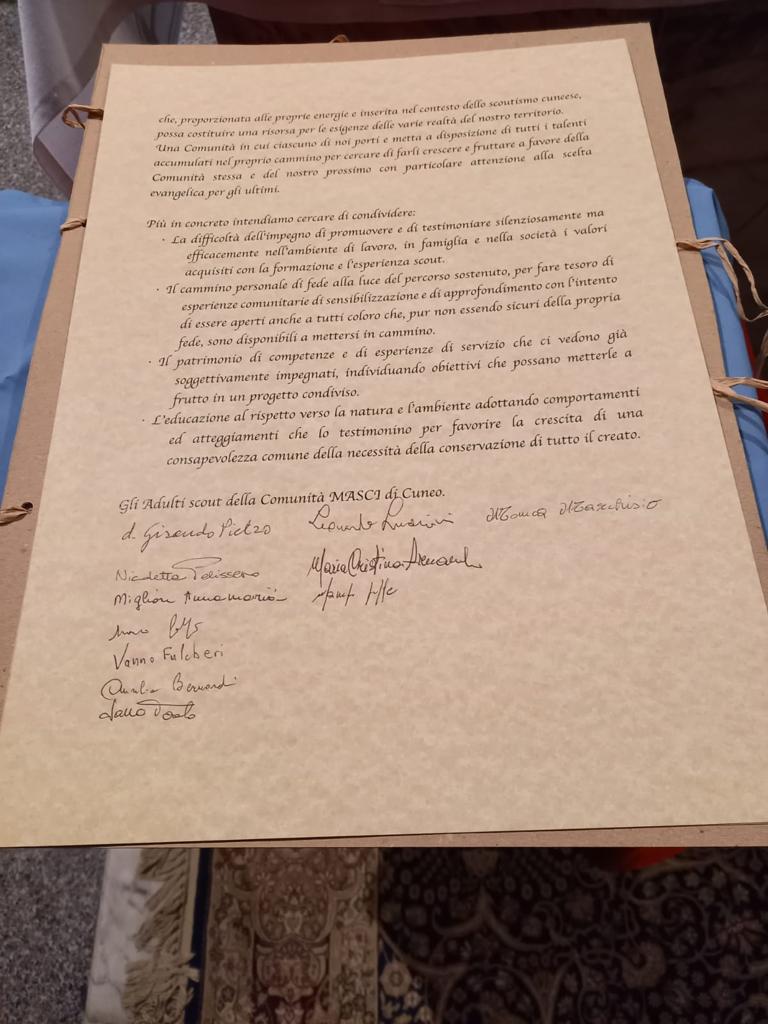 che, proporzionata alle proprie energie e inserita nel contesto dello scoutismo cuneese,
possa costituire una risorsa per le esigenze delle varie realtà del nostro territorio.
Una Comunità in cui ciascuno di noi porti e metta a disposizione di tutti i talenti
accumulati nel proprio cammino per cercare di farli crescere e fruttare a favore della
Comunità stessa e del nostro prossimo con particolare attenzione alla scelta
evangelica per gli ultimi.
Più in concreto intendiamo cercare di condividere:
· La difficoltà dell'impegno di promuovere e di testimoniare silenziosamente ma
efficacemente nell'ambiente di lavoro, in famiglia e nella società i valori
acquisiti con la formazione e l'esperienza scout.
· Il cammino personale di fede alla luce del percorso sostenuto, per fare tesoro di
esperienze comunitarie di sensibilizzazione e di approfondimento con l'intento
di essere aperti anche a tutti coloro che, pur non essendo sicuri della propria
fede, sono disponibili a mettersi in cammino.
· Il patrimonio di competenze e di esperienze di servizio che ci vedono già
soggettivamente impegnati, individuando obiettivi che possano metterle a
frutto in un progetto condiviso.
· L'educazione al rispetto verso la natura e l'ambiente adottando comportamenti
ed atteggiamenti che lo testimonino per favorire la crescita di una
consapevolezza comune della necessità della conservazione di tutto il creato.
Gli Adulti scout della Comunità MASCI di Cuneo.
d. Pietro Leonardo
Nicoletta Maria Cristina
Migliori Annamaria
Vanno Fulcheri
Bernardi